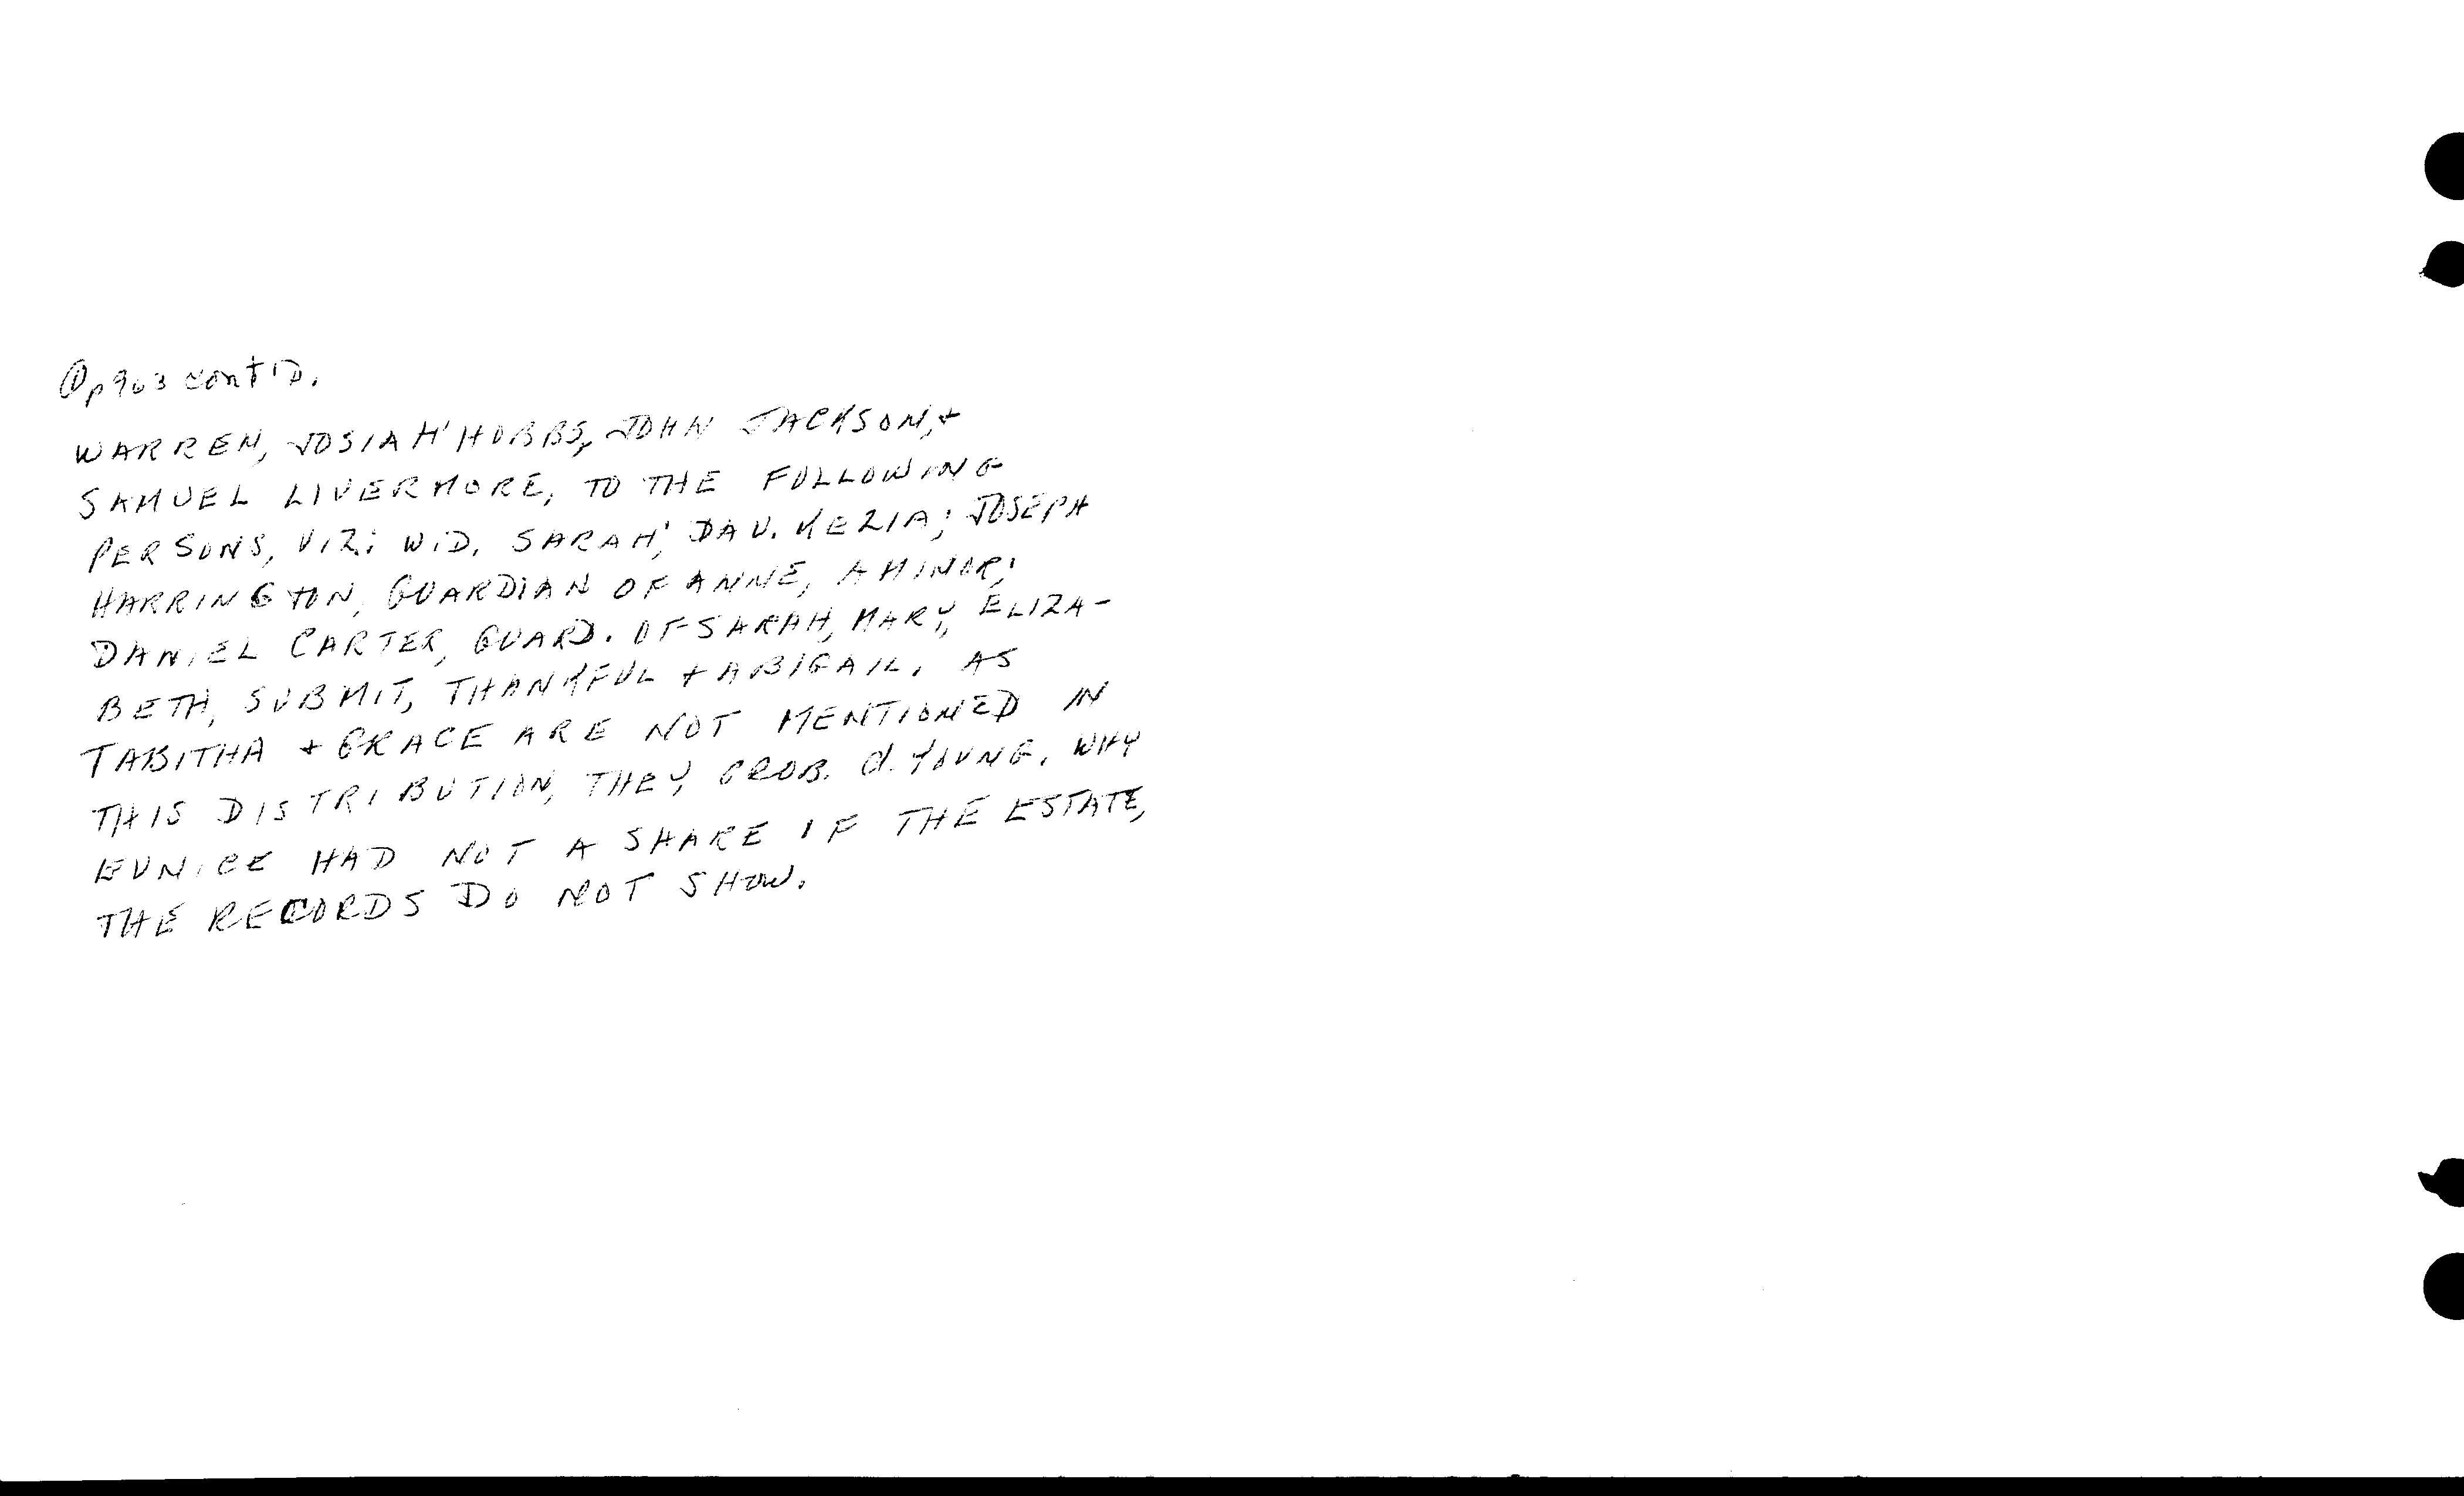 ① p903 cont'D.
WARREN, JOSIAH HOBBS, JOHN JACKSON, +
SAMUEL LIVERMORE, TO THE FOLLOWING
PERSONS, VIZ: WID. SARAH; DAU. KEZIA; JOSEPH
HARRINGTON, GUARDIAN OF ANNE, A MINOR;
DANIEL CARTER, GUARD. OF SARAH, MARY, ELIZA-
BETH, SUBMIT, THANKFUL + ABIGAIL. AS
TABITHA + GRACE ARE NOT MENTIONED IN
THIS DISTRIBUTION, THEY PROB. d. YOUNG. WHY
EUNICE HAD NOT A SHARE IF THE ESTATE,
THE RECORDS DO NOT SHOW.